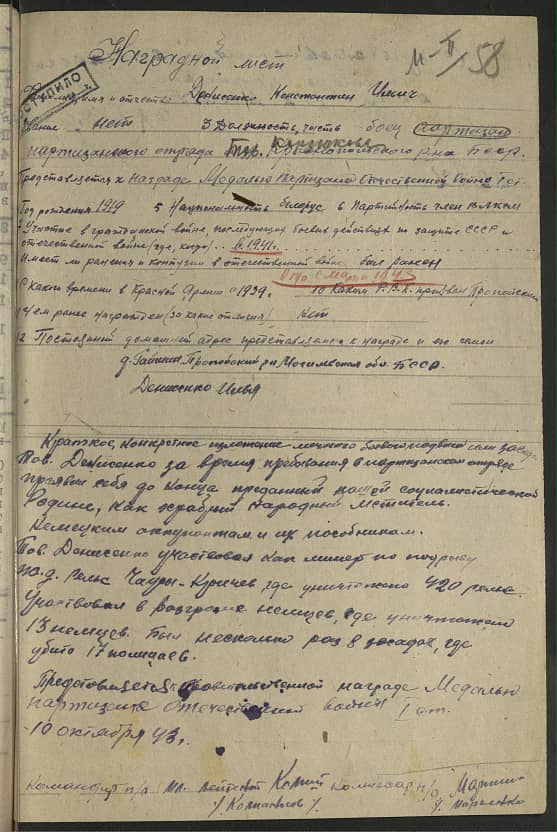 Наградной лист
11-II/58
СТУПИЛО
имя и отчество Денисенко Константин Ильич
Звание нет 3 Должность, часть боец партизан
партизанского отряда р-на БССР.
Представляется к награде Медалью Партизана Отечественной Войны I ст.
Год рождения 1919 5 Национальность белорус 6 Партийность член ВЛКСМ
Участие в гражданской войне, последующих боевых действиях по защите СССР и
отечественной войне (где, когда) с 1941 г.
Имеет ли ранения и контузии в отечественной войне был ранен
в п/о с мая 1943
С какого времени в Красной Армии с 1939г. 10 Каким Р.В.К. призван Пропойским
Чем ранее награжден (за какие отличия) нет
12 Постоянный домашний адрес представляемого к награде и его семьи
д. Пропойский р-н Могилевская обл. БССР.
Денисенко Илья
Краткое, конкретное изложение личного боевого подвига или заслуг
Тов. Денисенко за время пребывания в партизанском отряде
проявил себя до конца преданный нашей социалистической
Родине, как храбрый народный мститель.
Немецким оккупантам и их пособникам.
Тов. Денисенко участвовал как минер по подрыву
ж.д. рельс Чаусы-Кричев где уничтожено 420 рельс.
Участвовал в разгроме немцев, где уничтожено
13 немцев. Был несколько раз в засадах, где
убито 17 полицаев.
Представляется к правительственной награде Медалью
партизана Отечественной войны I ст.
10 октября 43 г.
Командир п/о мл. лейтенант Комиссар п/о